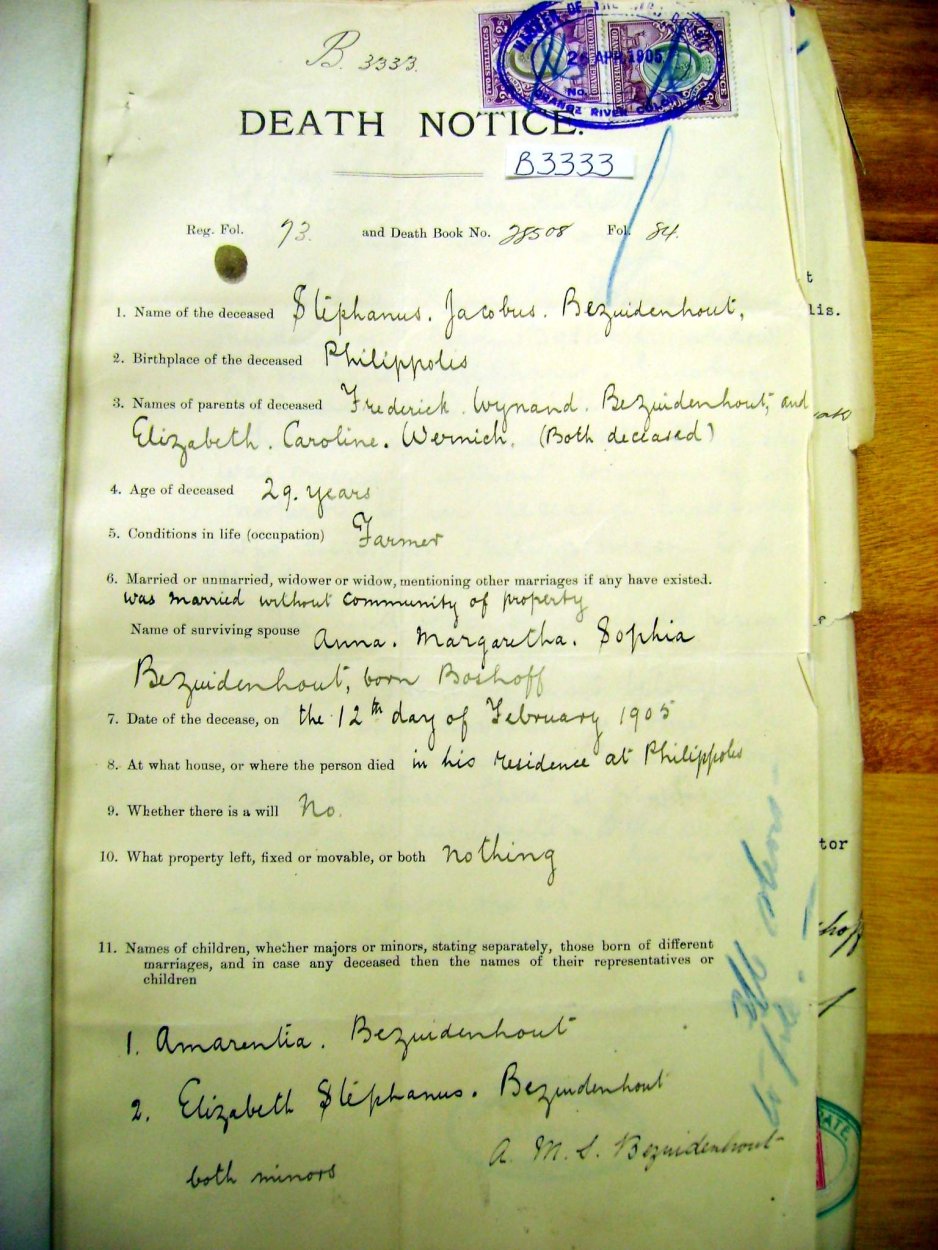 B. 3333.
TWO SHILLINGS
ORANGE RIVER COLONY
26 APR 1905
No.
ORANGE RIVER COLONY
DEATH NOTICE.
B3333
Reg. Fol. 73. and Death Book No. 28508 Fol. 84.
1. Name of the deceased Stéphanus. Jacobus. Bezuidenhout,
2. Birthplace of the deceased Philippolis
3. Names of parents of deceased Frederick. Wynand. Bezuidenhout, and
Elizabeth. Caroline. Wernich. (Both deceased)
4. Age of deceased 29. years
5. Conditions in life (occupation) Farmer
6. Married or unmarried, widower or widow, mentioning other marriages if any have existed.
was married without community of property
Name of surviving spouse Anna. Margaretha. Sophia
Bezuidenhout, born Boshoff
7. Date of the decease, on the 12th day of February 1905
8. At what house, or where the person died in his residence at Philippolis
9. Whether there is a will No.
10. What property left, fixed or movable, or both nothing
11. Names of children, whether majors or minors, stating separately, those born of different
marriages, and in case any deceased then the names of their representatives or
children
1. Amarentia. Bezuidenhout
2. Elizabeth Stéphanus. Bezuidenhout
A. M. S. Bezuidenhout
both minors
lis.
tor
hoff